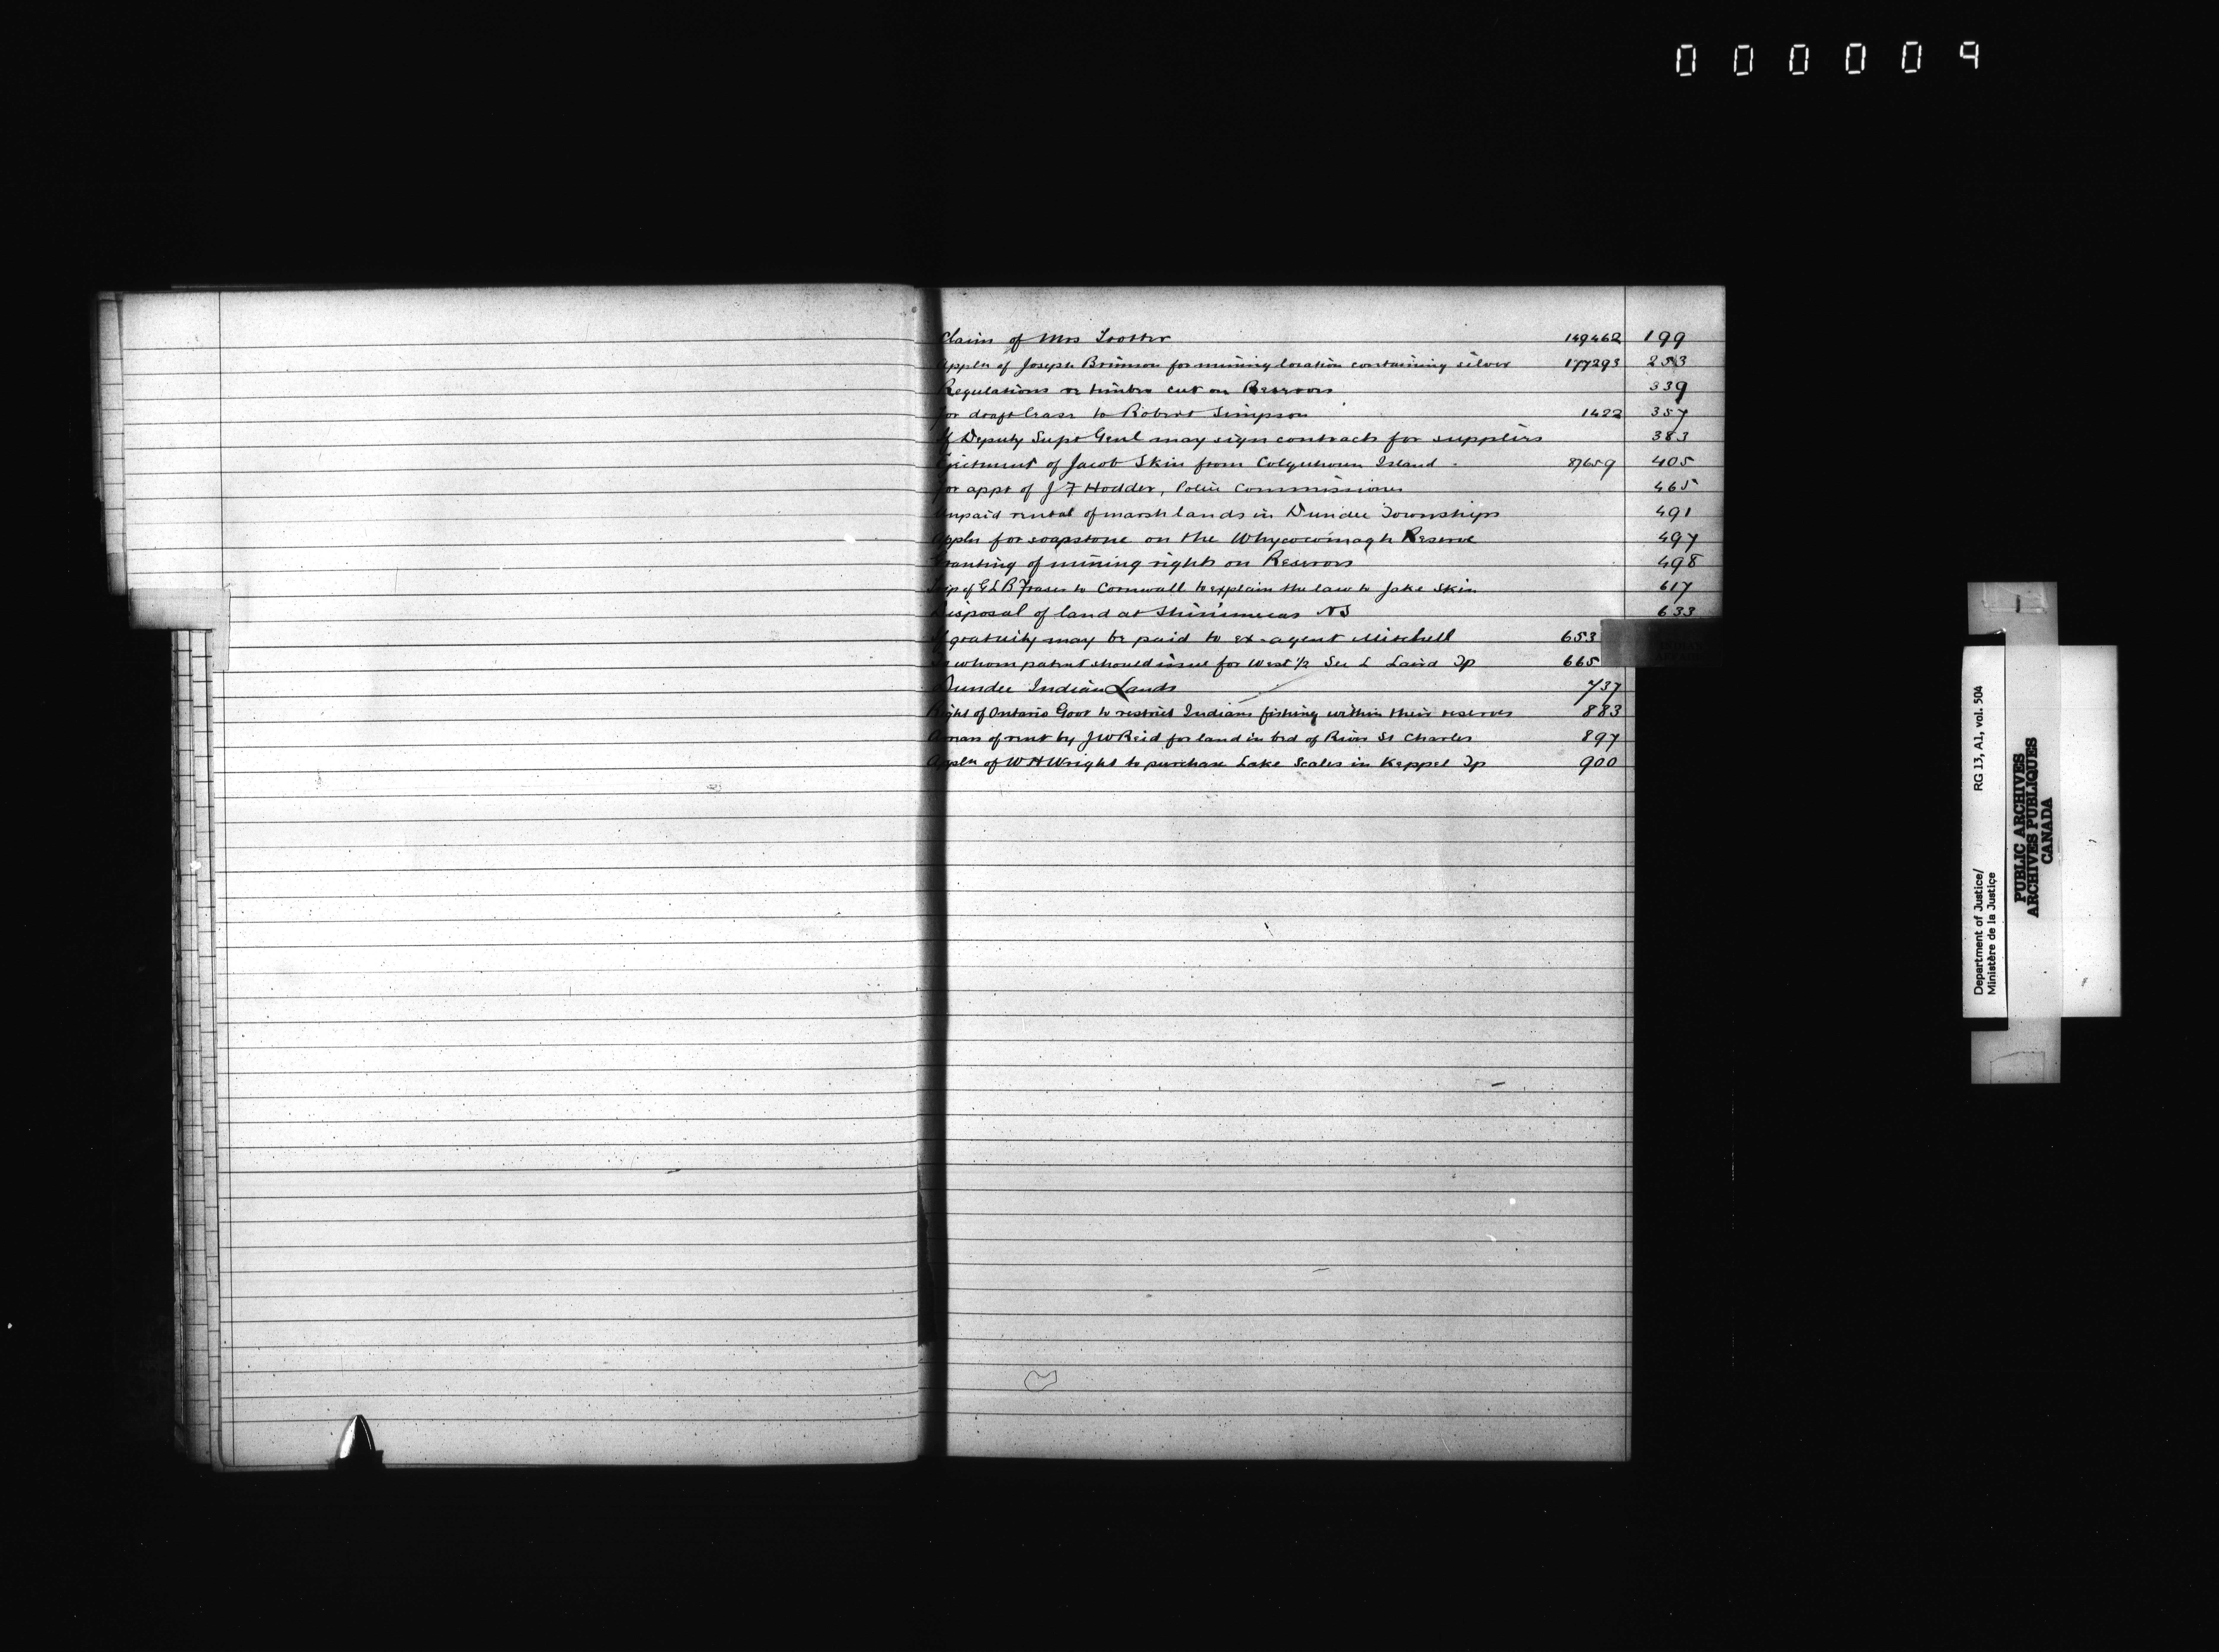 000009
Claim of Mrs Trotter 149462 199
Appln of Joseph Brimson for mining location containing silver 177293 253
Regulations re timber cut on Reserves 339
For draft lease to Robert Simpson 1422 357
If Deputy Supt Genl may sign contracts for supplies 383
Ejectment of Jacob Skin from Colquhoun Island 87659 405
For appt of J F Hodder, Police Commissioner 465
Unpaid rental of marsh lands in Dundee Townships 491
Appln for soapstone on the Whycocomagh Reserve 497
Granting of mining rights on Reserves 498
Trip of G L B Fraser to Cornwall to explain the law to Jake Skin 617
Disposal of land at Shinimecas NS 633
If gratuity may be paid to ex-agent Mitchell 653
To whom patent should issue for West 1/2 Sec L Laird Tp 665
Dundee Indian Lands 737
Right of Ontario Govt to restrict Indians fishing within their reserves 883
Arrears of rent by J W Reid for land in bed of River St Charles 897
Appln of W H Wright to purchase Lake Scales in Keppel Tp 900
Department of Justice/ RG 13, A1, vol. 504
Ministère de la Justice
PUBLIC ARCHIVES
ARCHIVES PUBLIQUES
CANADA